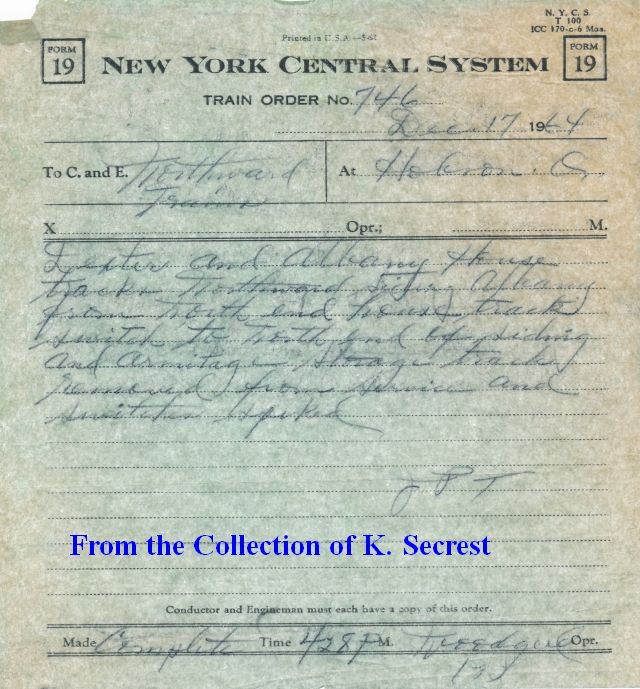 N. Y. C. S.
T 100
ICC 170-c-6 Mos.
Printed in U.S.A.—5-61
FORM 19
NEW YORK CENTRAL SYSTEM
FORM 19
TRAIN ORDER No. 746
Dec. 17 1964
To C. and E. Northward Trains At Hobson. O.
X Opr.; M.
Dexter and Albany House
tracks Northward siding Albany
from North end house track
switch to North end of siding
and Armitage storage track
removed from service and
switches spiked
J P T
From the Collection of K. Secrest
Conductor and Engineman must each have a copy of this order.
Made Complete Time 428P M. Opr.